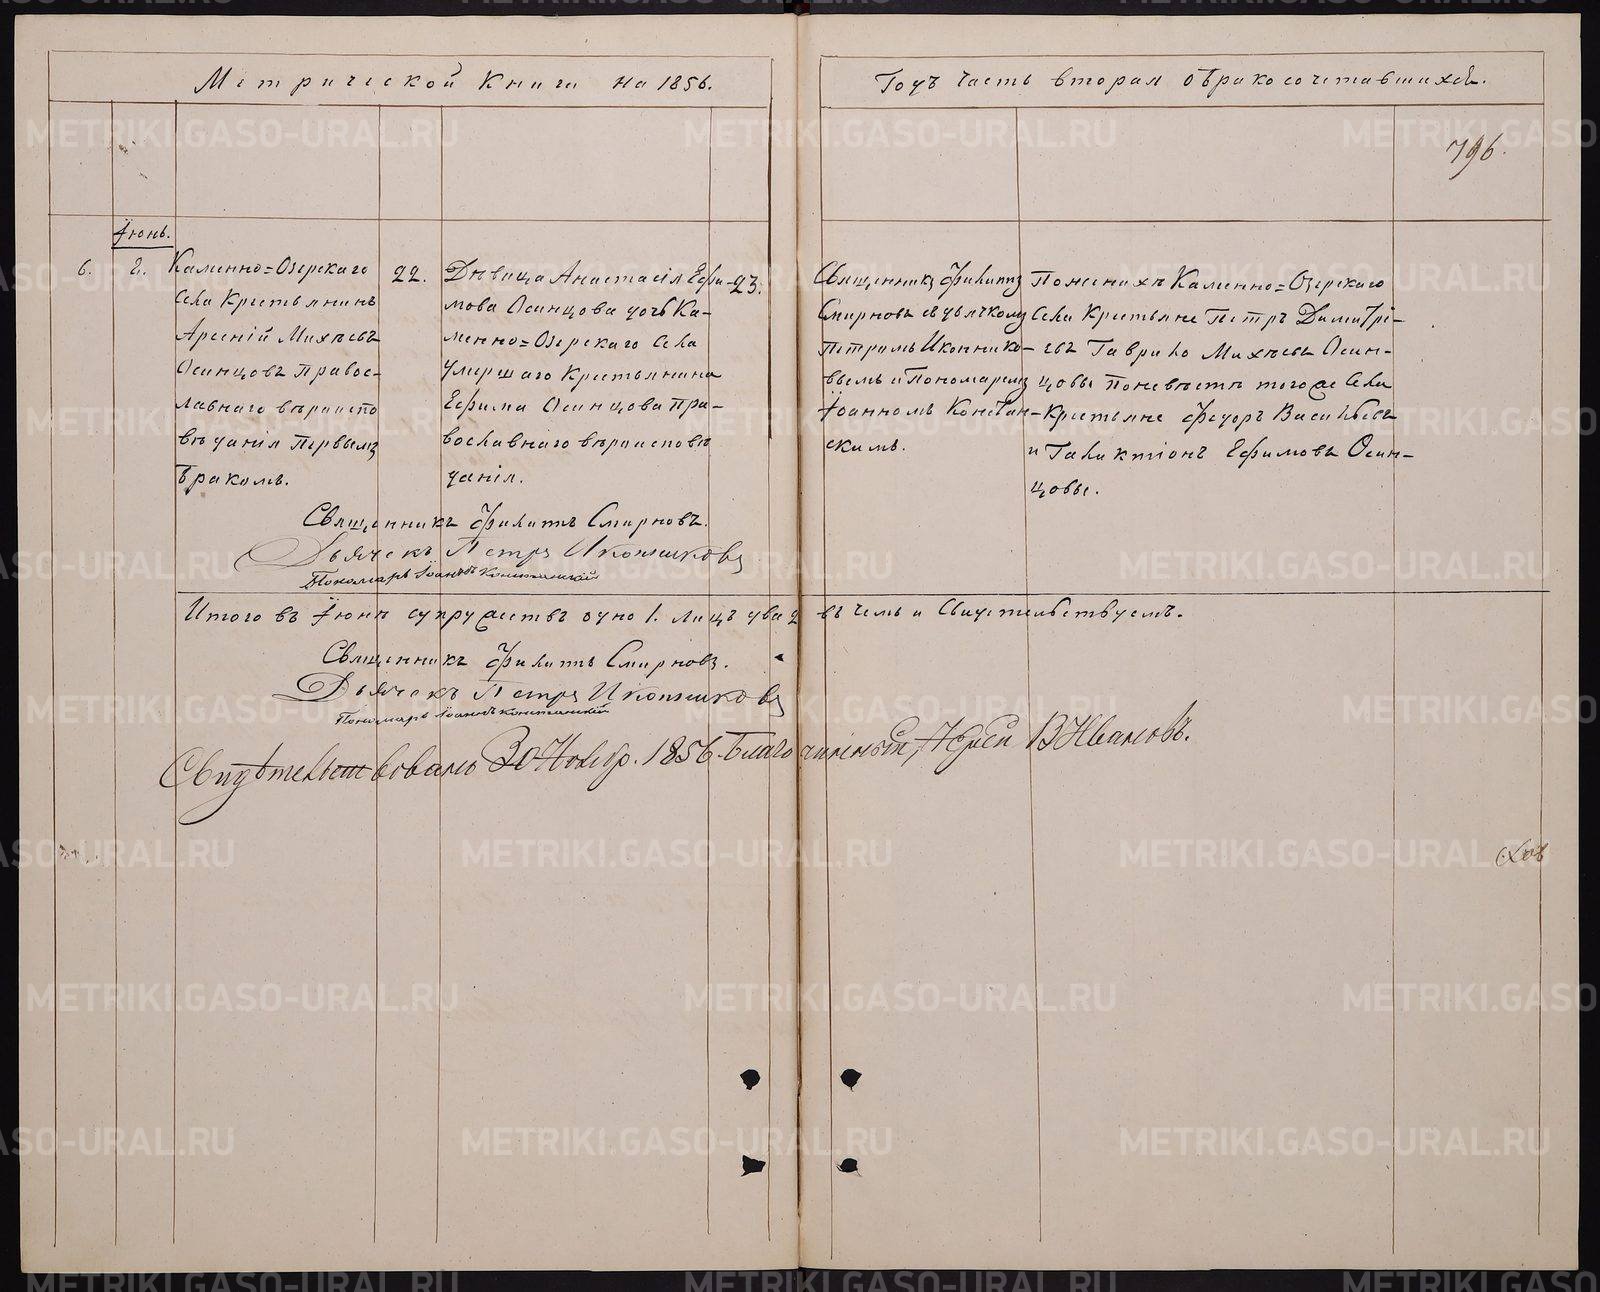 Метрической Книги на 1856.
Годъ Часть вторая о бракосочетавшихся.
796.
Іюнь.
6. 2.
Каменно=Озерскаго
Села Крестьянинъ
Арсеній Михѣевъ
Осинцовъ Правос-
лавнаго вѣроиспо
вѣданія Первымъ
бракомъ.
22.
Дѣвица Анастасія Ефи-
мова Осинцова дочь Ка-
менно=Озерскаго Села
умершаго Крестьянина
Ефима Осинцова Пра-
вославнаго вѣроисповѣ
данія.
23.
Священникъ Филиппъ
Смирновъ съ дьячкомъ
Петромъ Иконнико-
вымъ и Пономаремъ
Іоанномъ Констан-
скимъ.
По женихѣ Каменно=Озерскаго
Села Крестьяне Петръ Димитрі-
евъ Гаврило Михѣевъ Осин-
цовы по невѣстѣ того же Села
Крестьяне Федоръ Васильевъ
и Галактіонъ Ефимовъ Осин-
цовы.
Священникъ Филиппъ Смирновъ.
Дьячекъ Петръ Иконниковъ
Пономарь Іоаннъ Констанскій
Итого въ Іюнѣ супружествъ одно 1. лицъ два 2 въ чемъ и Свидетельствуемъ.
Священникъ Филиппъ Смирновъ.
Дьячекъ Петръ Иконниковъ
Пономарь Іоаннъ Констанскій
Свидѣтельствовалъ 30 Ноябр. 1856. Благочинный, Іерей В Ивановъ.
METRIKI.GASO-URAL.RU